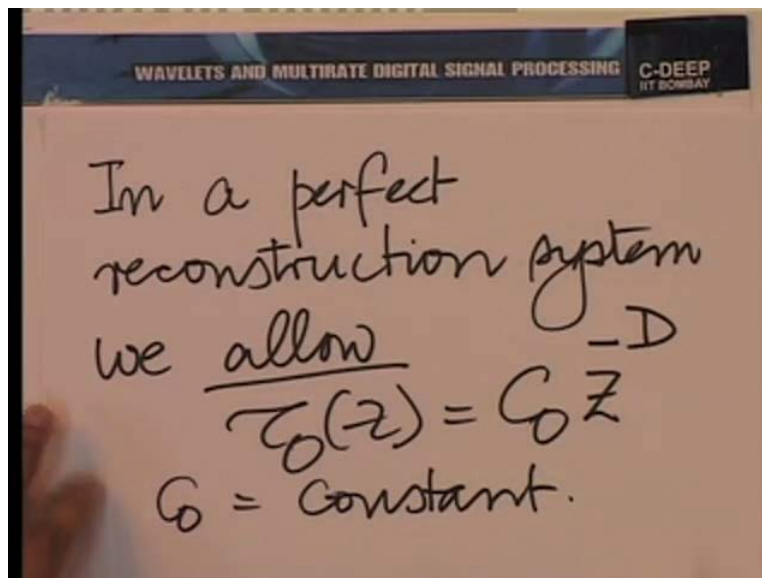 WAVELETS AND MULTIRATE DIGITAL SIGNAL PROCESSING
C-DEEP
IIT BOMBAY
In a perfect
reconstruction system
we allow
τ₀(z) = C₀ z^{-D}
C₀ = constant.